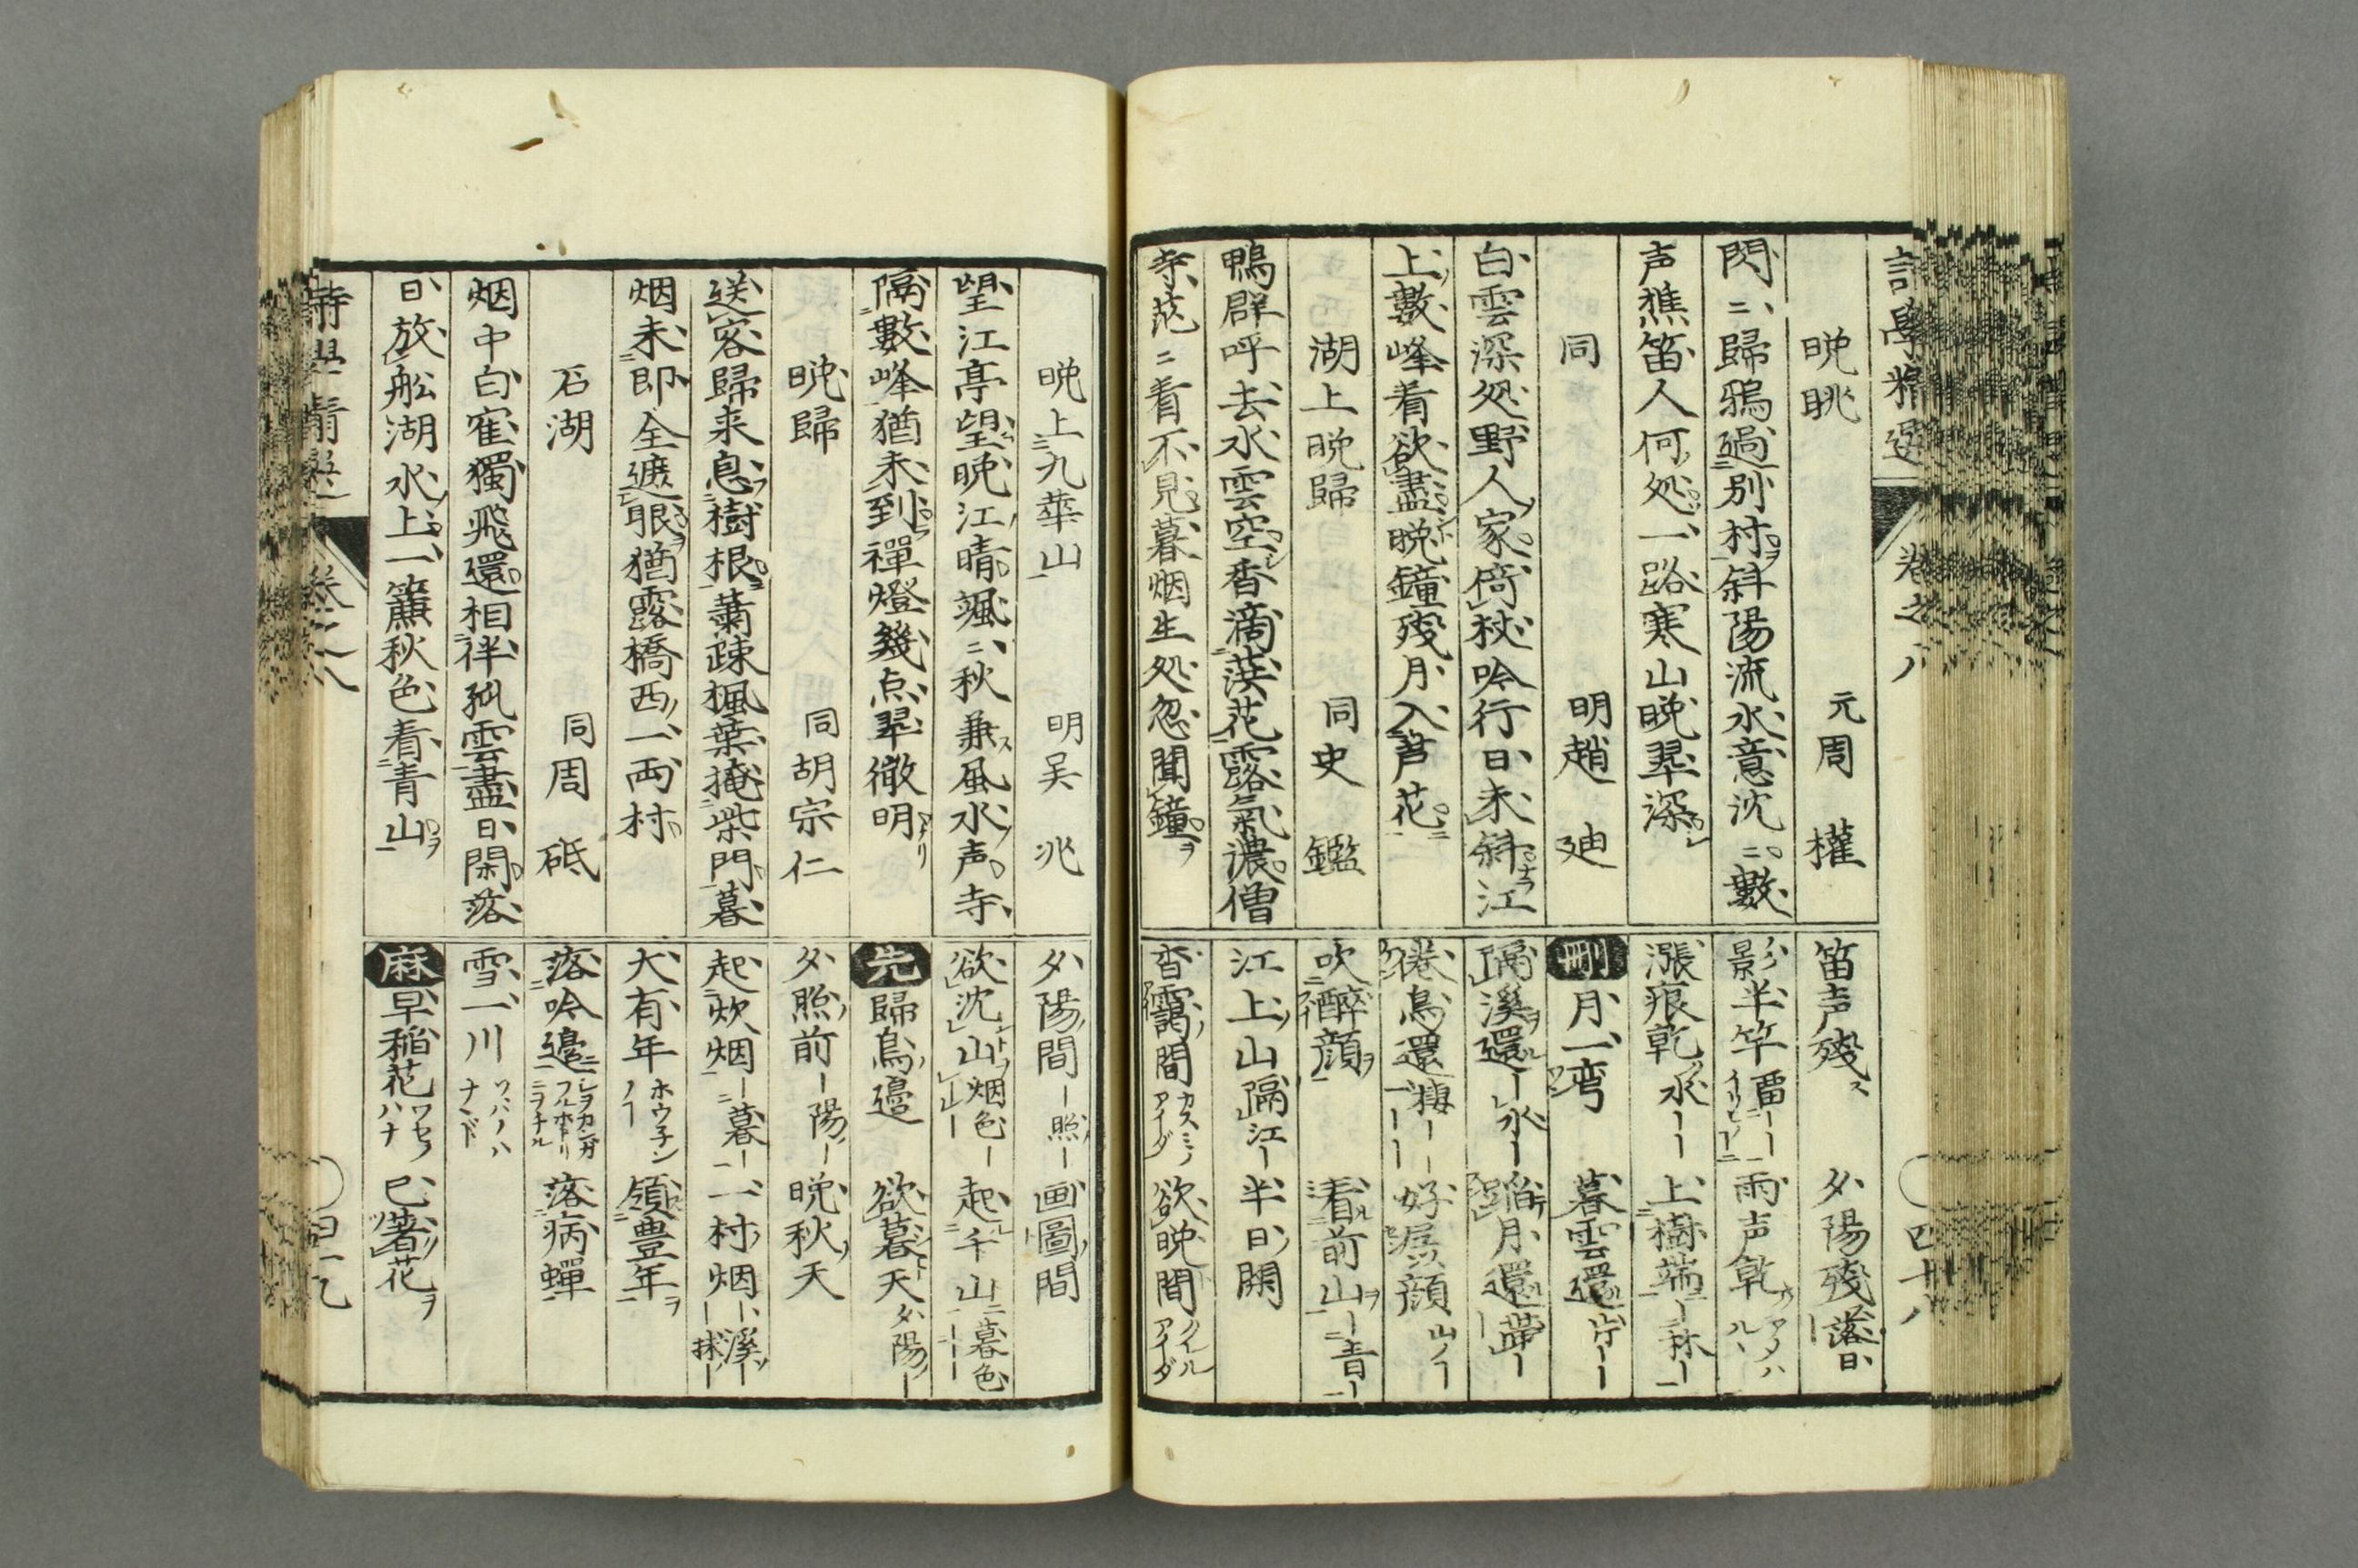 晩眺　元周　權
閃〻歸鴉過別村斜陽流水意沈〻數
声樵笛人何処一路寒山晩翠深
同　明趙　迪
白雲深処野人家倚杖吟行日未斜江
上數峰看欲盡晩鐘殘月入芦花
湖上晩歸　同史　鑑
鴨群呼去水雲空香滴葓花露氣濃僧
寺茫〻看不見暮烟生処忽聞鐘
笛声殘ス　夕陽殘　落日
影半竿　雨声乾
漲痕乾　水　上樹端
刪　月一湾　暮雲還
隔溪還　水　月還
倦鳥還　棲　好孱顔
吹醉顔　看前山　青
江上山　隔江　半日閑
香靄間　カスミノアイダ　欲晩間
晩上九華山　明吴　兆
望江亭望晩江晴颯〻秋兼風水声寺
隔數峰猶未到禪燈幾点翠徹明
晩歸　同胡宗仁
送客歸来息樹根蕭疎楓葉掩柴門暮
烟未即全遮眼猶露橋西一両村
石湖　同周　砥
烟中白寉獨飛還相伴孤雲盡日閑落
日放舩湖水上一簾秋色看青山
夕陽間　照　画圖間
欲沈山　烟色　起千山　暮色
先　歸鳥邉　欲暮天　夕陽
夕照前　陽　晩秋天
起炊烟　暮　一村烟　溪　抹
大有年　ホウ子ン　領豊年ヲ
落吟邉　落病蟬
雪一川　ナンド
麻　早稲花　ワセノハナ　已著花ヲ